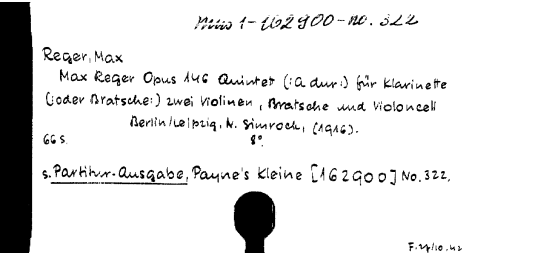 Mus 1-162900-no. 322
Reger, Max
Max Reger Opus 146 Quintet (:A dur:) für Klarinette
(:oder Bratsche:) zwei Violinen, Bratsche und Violoncell
Berlin/Leipzig, N. Simrock, (1916).
66 S. 8°.
s. Partitur-Ausgabe, Payne's Kleine [162900] No. 322.